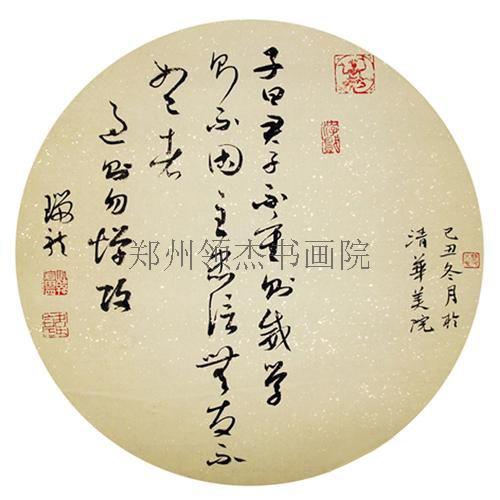 己丑冬月於
清華美院
子曰君子不重则威学
则不固主忠信無友不
如己者
过则勿惮改
郑州领杰书画院